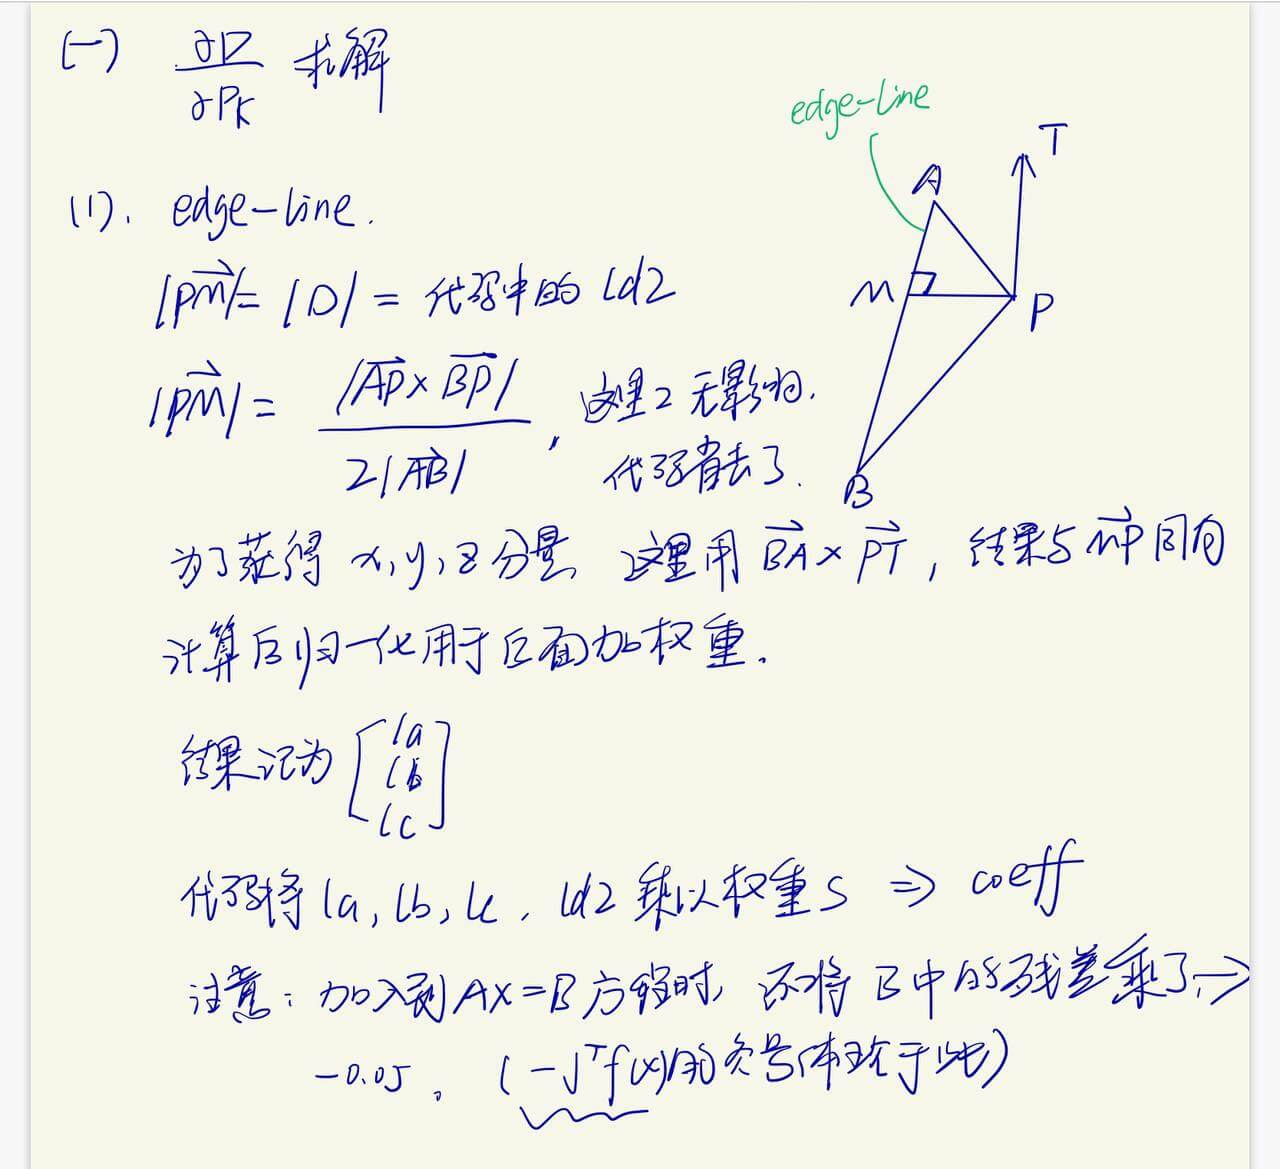 (一) ∂D/∂Pk 求解
edge-line
T
A
(1). edge-line.
|PM→| = |D| = 代码中的 ld2
M
P
|PM→| = |AP→ × BP→| / 2|AB→| , 这里2无影响.
代码消去了.
B
为了获得 x, y, z 分量 这里用 BA→ × PT→, 结果与 MP→ 同向
计算后归一化用于后面加权重.
结果记为 [la
lb
lc]
代码将 la, lb, lc, ld2 乘以权重 s ⇒ coeff
注意: 加入到 AX=B 方程时, 还将 B 中的残差乘了一>
-0.05 。 (-Jᵀf(x)的负号体现于此)